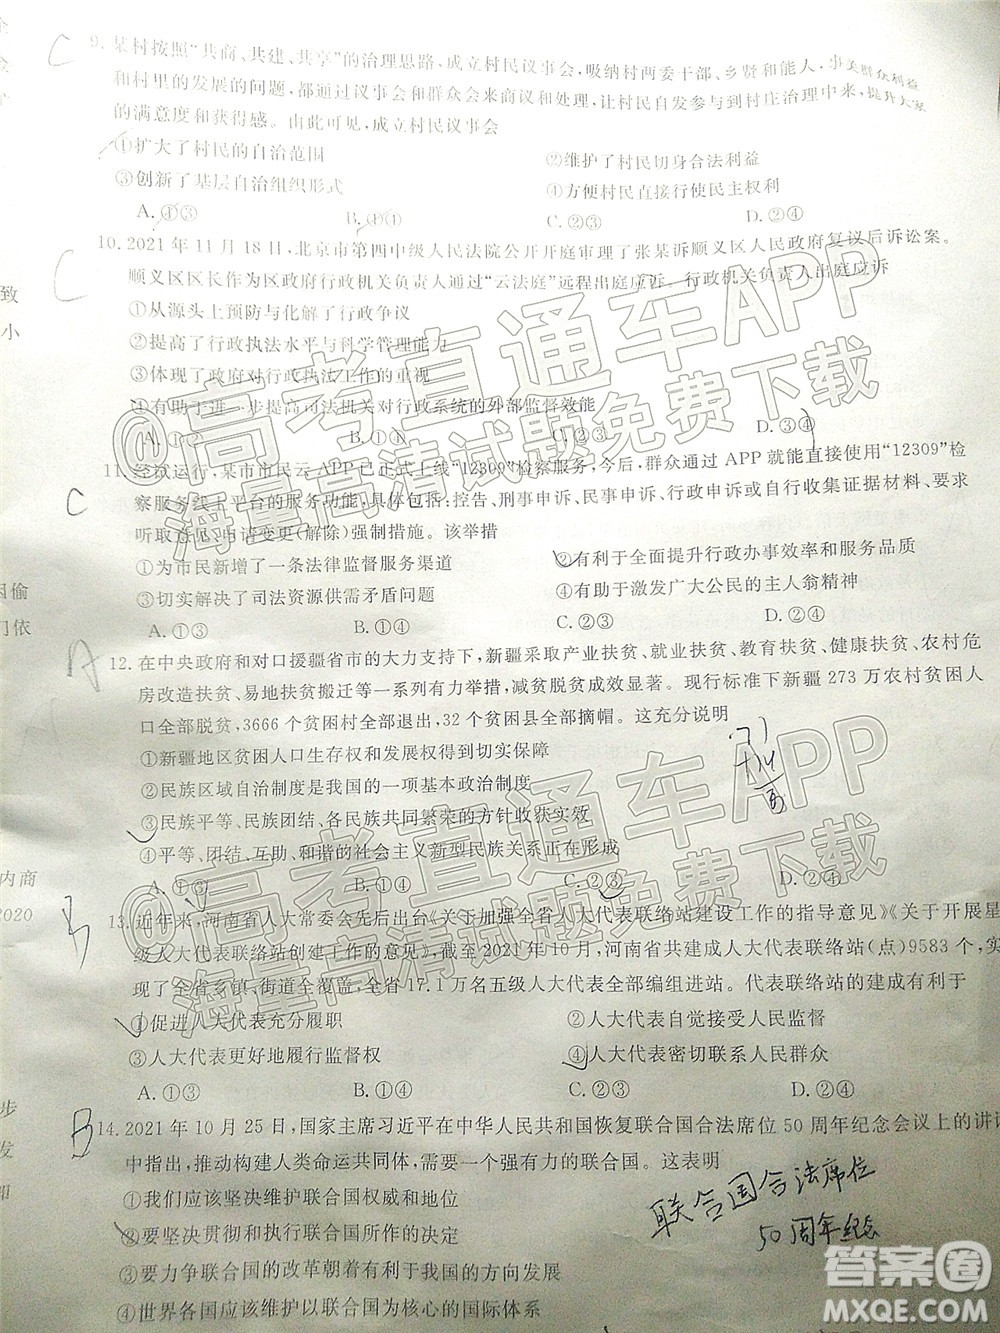 C
9. 某村按照“共商、共建、共享”的治理思路，成立村民议事会，吸纳村两委干部、乡贤和能人，事关群众利益
和村里的发展的问题，都通过议事会和群众会来商议和处理，让村民自发参与到村庄治理中来，提升大家
的满意度和获得感。由此可见，成立村民议事会
①扩大了村民的自治范围 ②维护了村民切身合法利益
③创新了基层自治组织形式 ④方便村民直接行使民主权利
A. ①③ B. ①④ C. ②③ D. ②④
C
10. 2021 年 11 月 18 日，北京市第四中级人民法院公开开庭审理了张某诉顺义区人民政府复议后诉讼案。
顺义区区长作为区政府行政机关负责人通过“云法庭”远程出庭应诉。行政机关负责人出庭应诉
①从源头上预防与化解了行政争议
②提高了行政执法水平与科学管理能力
③体现了政府对行政执法工作的重视
④有助于进一步提高司法机关对行政系统的外部监督效能
A. ①② B. ①④ C. ②③ D. ③④
C
11. 经试运行，某市市民云 APP 已正式上线“12309”检察服务，今后，群众通过 APP 就能直接使用“12309”检
察服务线上平台的服务功能，具体包括：控告、刑事申诉、民事申诉、行政申诉或自行收集证据材料、要求
听取意见、申请变更（解除）强制措施。该举措
①为市民新增了一条法律监督服务渠道 ②有利于全面提升行政办事效率和服务品质
③切实解决了司法资源供需矛盾问题 ④有助于激发广大公民的主人翁精神
A. ①③ B. ①④ C. ②③ D. ②④
A
12. 在中央政府和对口援疆省市的大力支持下，新疆采取产业扶贫、就业扶贫、教育扶贫、健康扶贫、农村危
房改造扶贫、易地扶贫搬迁等一系列有力举措，减贫脱贫成效显著。现行标准下新疆 273 万农村贫困人
口全部脱贫，3666 个贫困村全部退出，32 个贫困县全部摘帽。这充分说明
①新疆地区贫困人口生存权和发展权得到切实保障
②民族区域自治制度是我国的一项基本政治制度
③民族平等、民族团结、各民族共同繁荣的方针收获实效
④平等、团结、互助、和谐的社会主义新型民族关系正在形成
A. ①③ B. ①④ C. ②③ D. ②④
B
13. 近年来，河南省人大常委会先后出台《关于加强全省人大代表联络站建设工作的指导意见》《关于开展星
级人大代表联络站创建工作的意见》，截至 2021 年 10 月，河南省共建成人大代表联络站（点）9583 个，实
现了全省乡镇、街道全覆盖，全省 17.1 万名五级人大代表全部编组进站。代表联络站的建成有利于
①促进人大代表充分履职 ②人大代表自觉接受人民监督
③人大代表更好地履行监督权 ④人大代表密切联系人民群众
A. ①③ B. ①④ C. ②③ D. ②④
B
14. 2021 年 10 月 25 日，国家主席习近平在中华人民共和国恢复联合国合法席位 50 周年纪念会议上的讲话
中指出，推动构建人类命运共同体，需要一个强有力的联合国。这表明
①我们应该坚决维护联合国权威和地位
②要坚决贯彻和执行联合国所作的决定
③要力争联合国的改革朝着有利于我国的方向发展
④世界各国应该维护以联合国为核心的国际体系
联合国合法席位
50周年纪念
致
小
因偷
们依
内商
2020
步
发
@高考直通车APP
海量高清试题免费下载
@高考直通车APP
海量高清试题免费下载
答案圈
MXQE.COM